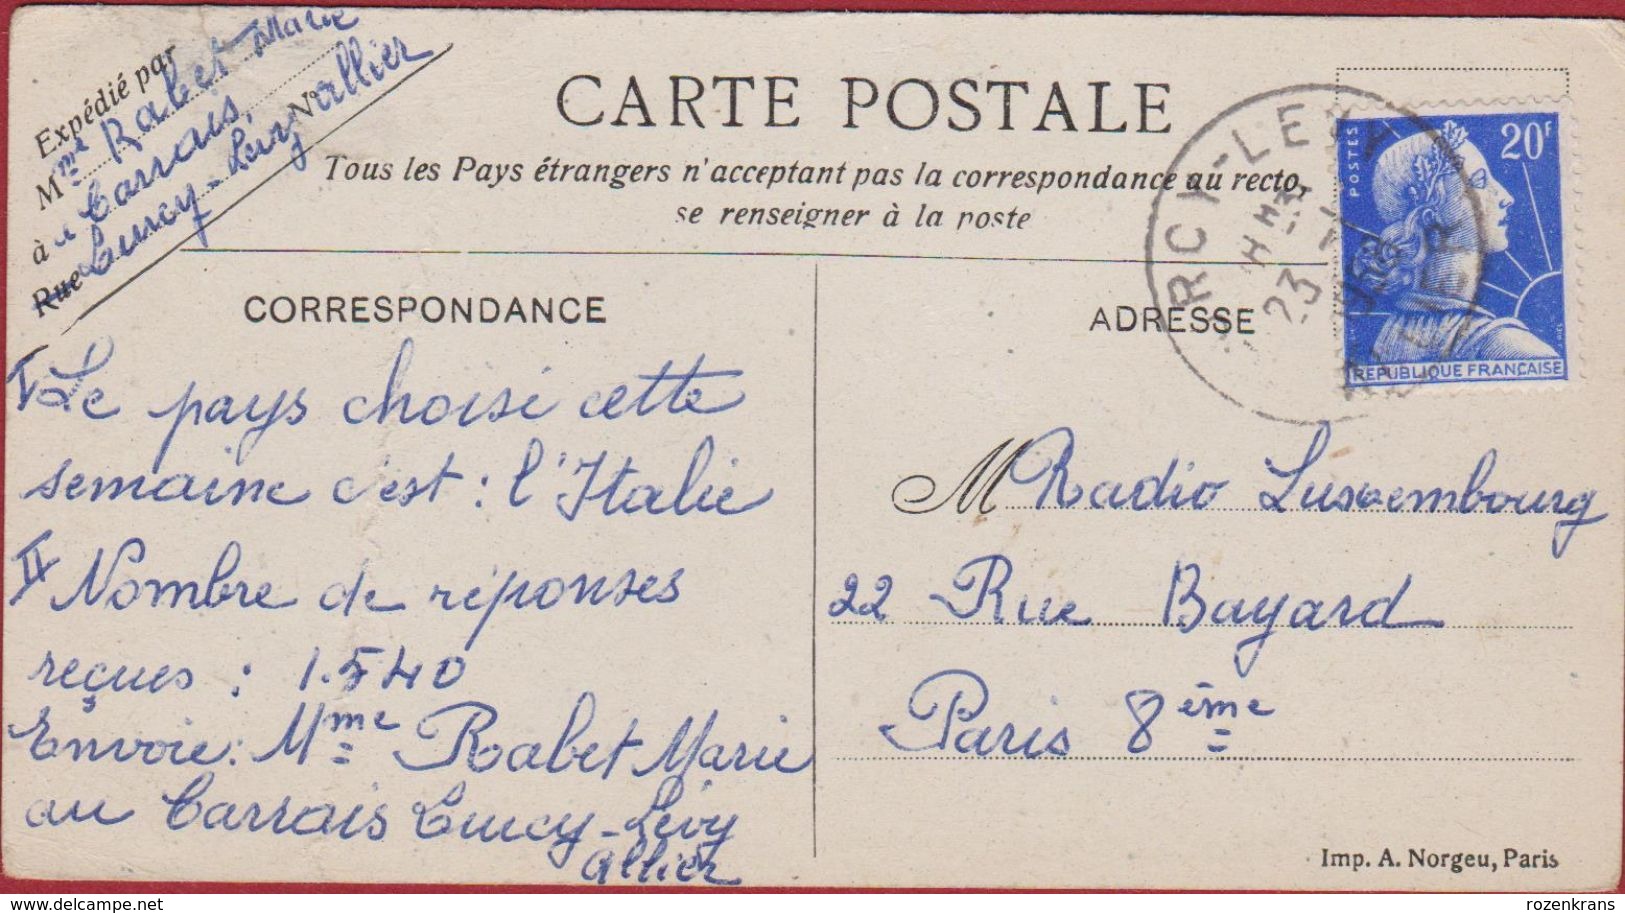 Expédié par
Mme Rabet Marie
à Carrais N° allier
Rue Lurcy-Lévy
CARTE POSTALE
Tous les Pays étrangers n'acceptant pas la correspondance au recto,
se renseigner à la poste
POSTES 20F
REPUBLIQUE FRANÇAISE
23
CORRESPONDANCE
ADRESSE
I Le pays choisi cette
semaine c'est : l'Italie
II Nombre de réponses
reçues : 1.540
Envoie : Mme Rabet Marie
au Carrais Lurcy-Lévy
allier
M Radio Luxembourg
22 Rue Bayard
Paris 8ème
Imp. A. Norgeu, Paris
delcampe.net
rozenkrans